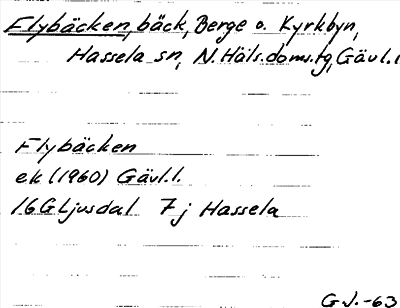 Flybäcken, bäck, Berge o. Kyrkbyn,
Hassela sn, N. Häls. doms.tg, Gävl. l
Flybäcken
ek (1960) Gävl.l.
16G Ljusdal 7 j Hassela
G J. -63